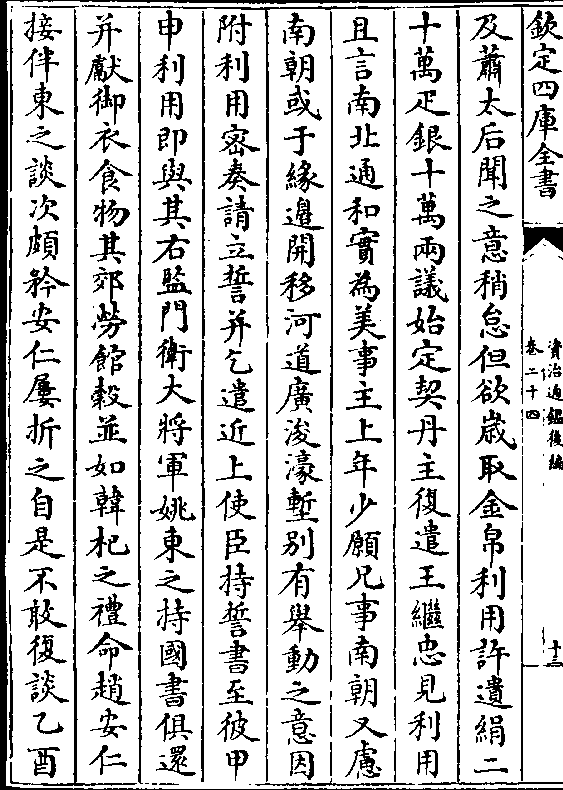 欽定四庫全書
資治通鑑後編
卷二十四
十三
及蕭太后聞之意稍怠但欲歲取金帛利用許遺絹二
十萬疋銀十萬兩議始定契丹主復遣王繼忠見利用
且言南北通和實為美事主上年少願兄事南朝又慮
南朝或于緣邊開移河道廣浚濠塹別有舉動之意因
附利用密奏請立誓并乞遣近上使臣持誓書至彼甲
申利用即與其右監門衛大將軍姚東之持國書俱還
并獻御衣食物其郊勞館穀並如韓杞之禮命趙安仁
接伴東之談次頗矜安仁屢折之自是不敢復談乙酉